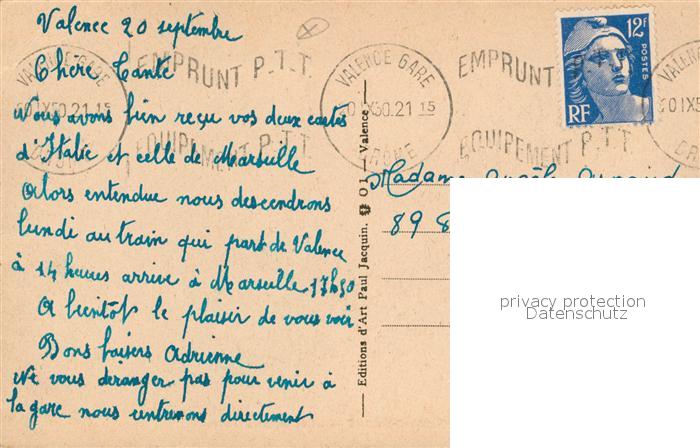 Valence 20 septembre
Chere Tante
Nous avons bien reçu vos deux cartes
d'Italie et celle de Marseille
Alors entendue nous descendrons
lundi au train qui part de Valence
à 14 heures arrive à Marseille 17h30
A bientôt le plaisir de vous voir
Bons baisers Adrienne
Ne vous déranger pas pour venir à
la gare nous rentrerons directement
EMPRUNT P.T.T.
EQUIPEMENT P.T.T.
VALENCE GARE
20 IX50.21 15
DROME
EMPRUNT
EQUIPEMENT P.T.T.
12F
POSTES
RF
Editions d'Art Paul Jacquin, Valence
Madame
89
privacy protection
Datenschutz